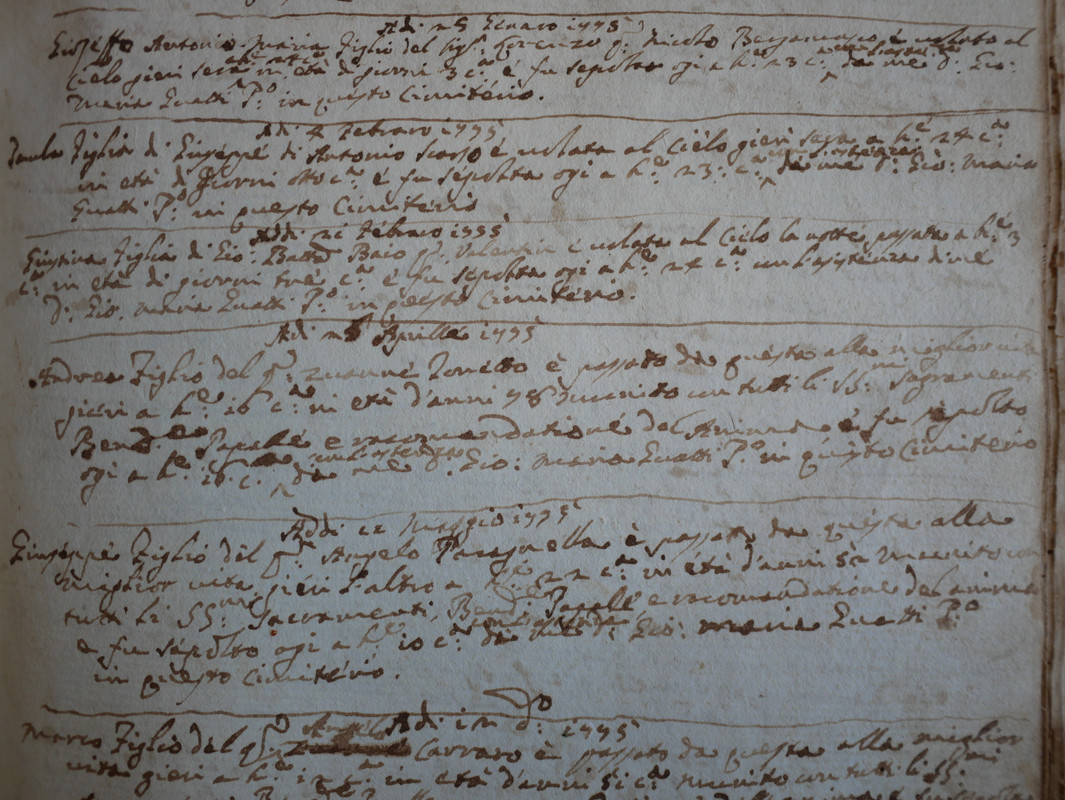 Adi 25 Genaro 1775
Gioseffo Antonio Maria Figlio del Sig.r Lorenzo q. Nicolò è volato al
Cielo gieri sera in età di giorni 3 c.a è fu sepolto ogi a h.e 23 c.a da me D. Gio:
Maria Gualti P.o in questo Cimiterio.
Adi 4 Febraro 1775
Paula Figlia di Giuseppe di Antonio Scarso è volata al Cielo gieri sera a h.e 24 c.a
in età di Giorni otto c.a è fu sepolta ogi a h.e 23: c.a da me D. Gio: Maria
Gualti P.o in questo Cimiterio
Addi 21 Febraro 1775
Giustina Figlia di Gio: Batta Baio q. Valentin è volata al Cielo la notte passata a h.e 3
c.a in età di giorni tre c.a è fu sepolta ogi a h.e 24 c.a con l'assistenza di me
D. Gio. Maria Gualti P.o in questo Cimiterio.
Adi 25 Aprille 1775
Andrea Figlio del q. Zuanne Zoratto è passato da questa alla miglior vita
gieri a h.e 16 c.a in età d'anni 78 munito con tutti li SS.mi Sagramenti
Bened.e Papale e racomandatione del Anima è fu sepolto
ogi a h.e 16 c. con l'assistenza da me D. Gio: Maria Gualti P.o in questo Cimiterio
Addi 12 Maggio 1775
Giuseppe Figlio dil q. Angelo è passato da questa alla
miglior vita gieri l'altro a h.e 22 c.a in età d'anni 52 munito con
tutti li SS.mi Sacramenti, Bened.e Papale e racomandatione del anima
e fu sepolto ogi a h.e 10 c.a con l'assistenza da me D. Gio: Maria Gualti P.o
in questo Cimiterio.
Adi 12 d.o 1775
Marco Figlio del q. Angelo Carraro è passato da questa alla miglior
vita gieri a h.e 12 c.a in età d'anni 51 c.a munito con tutti li SS.mi